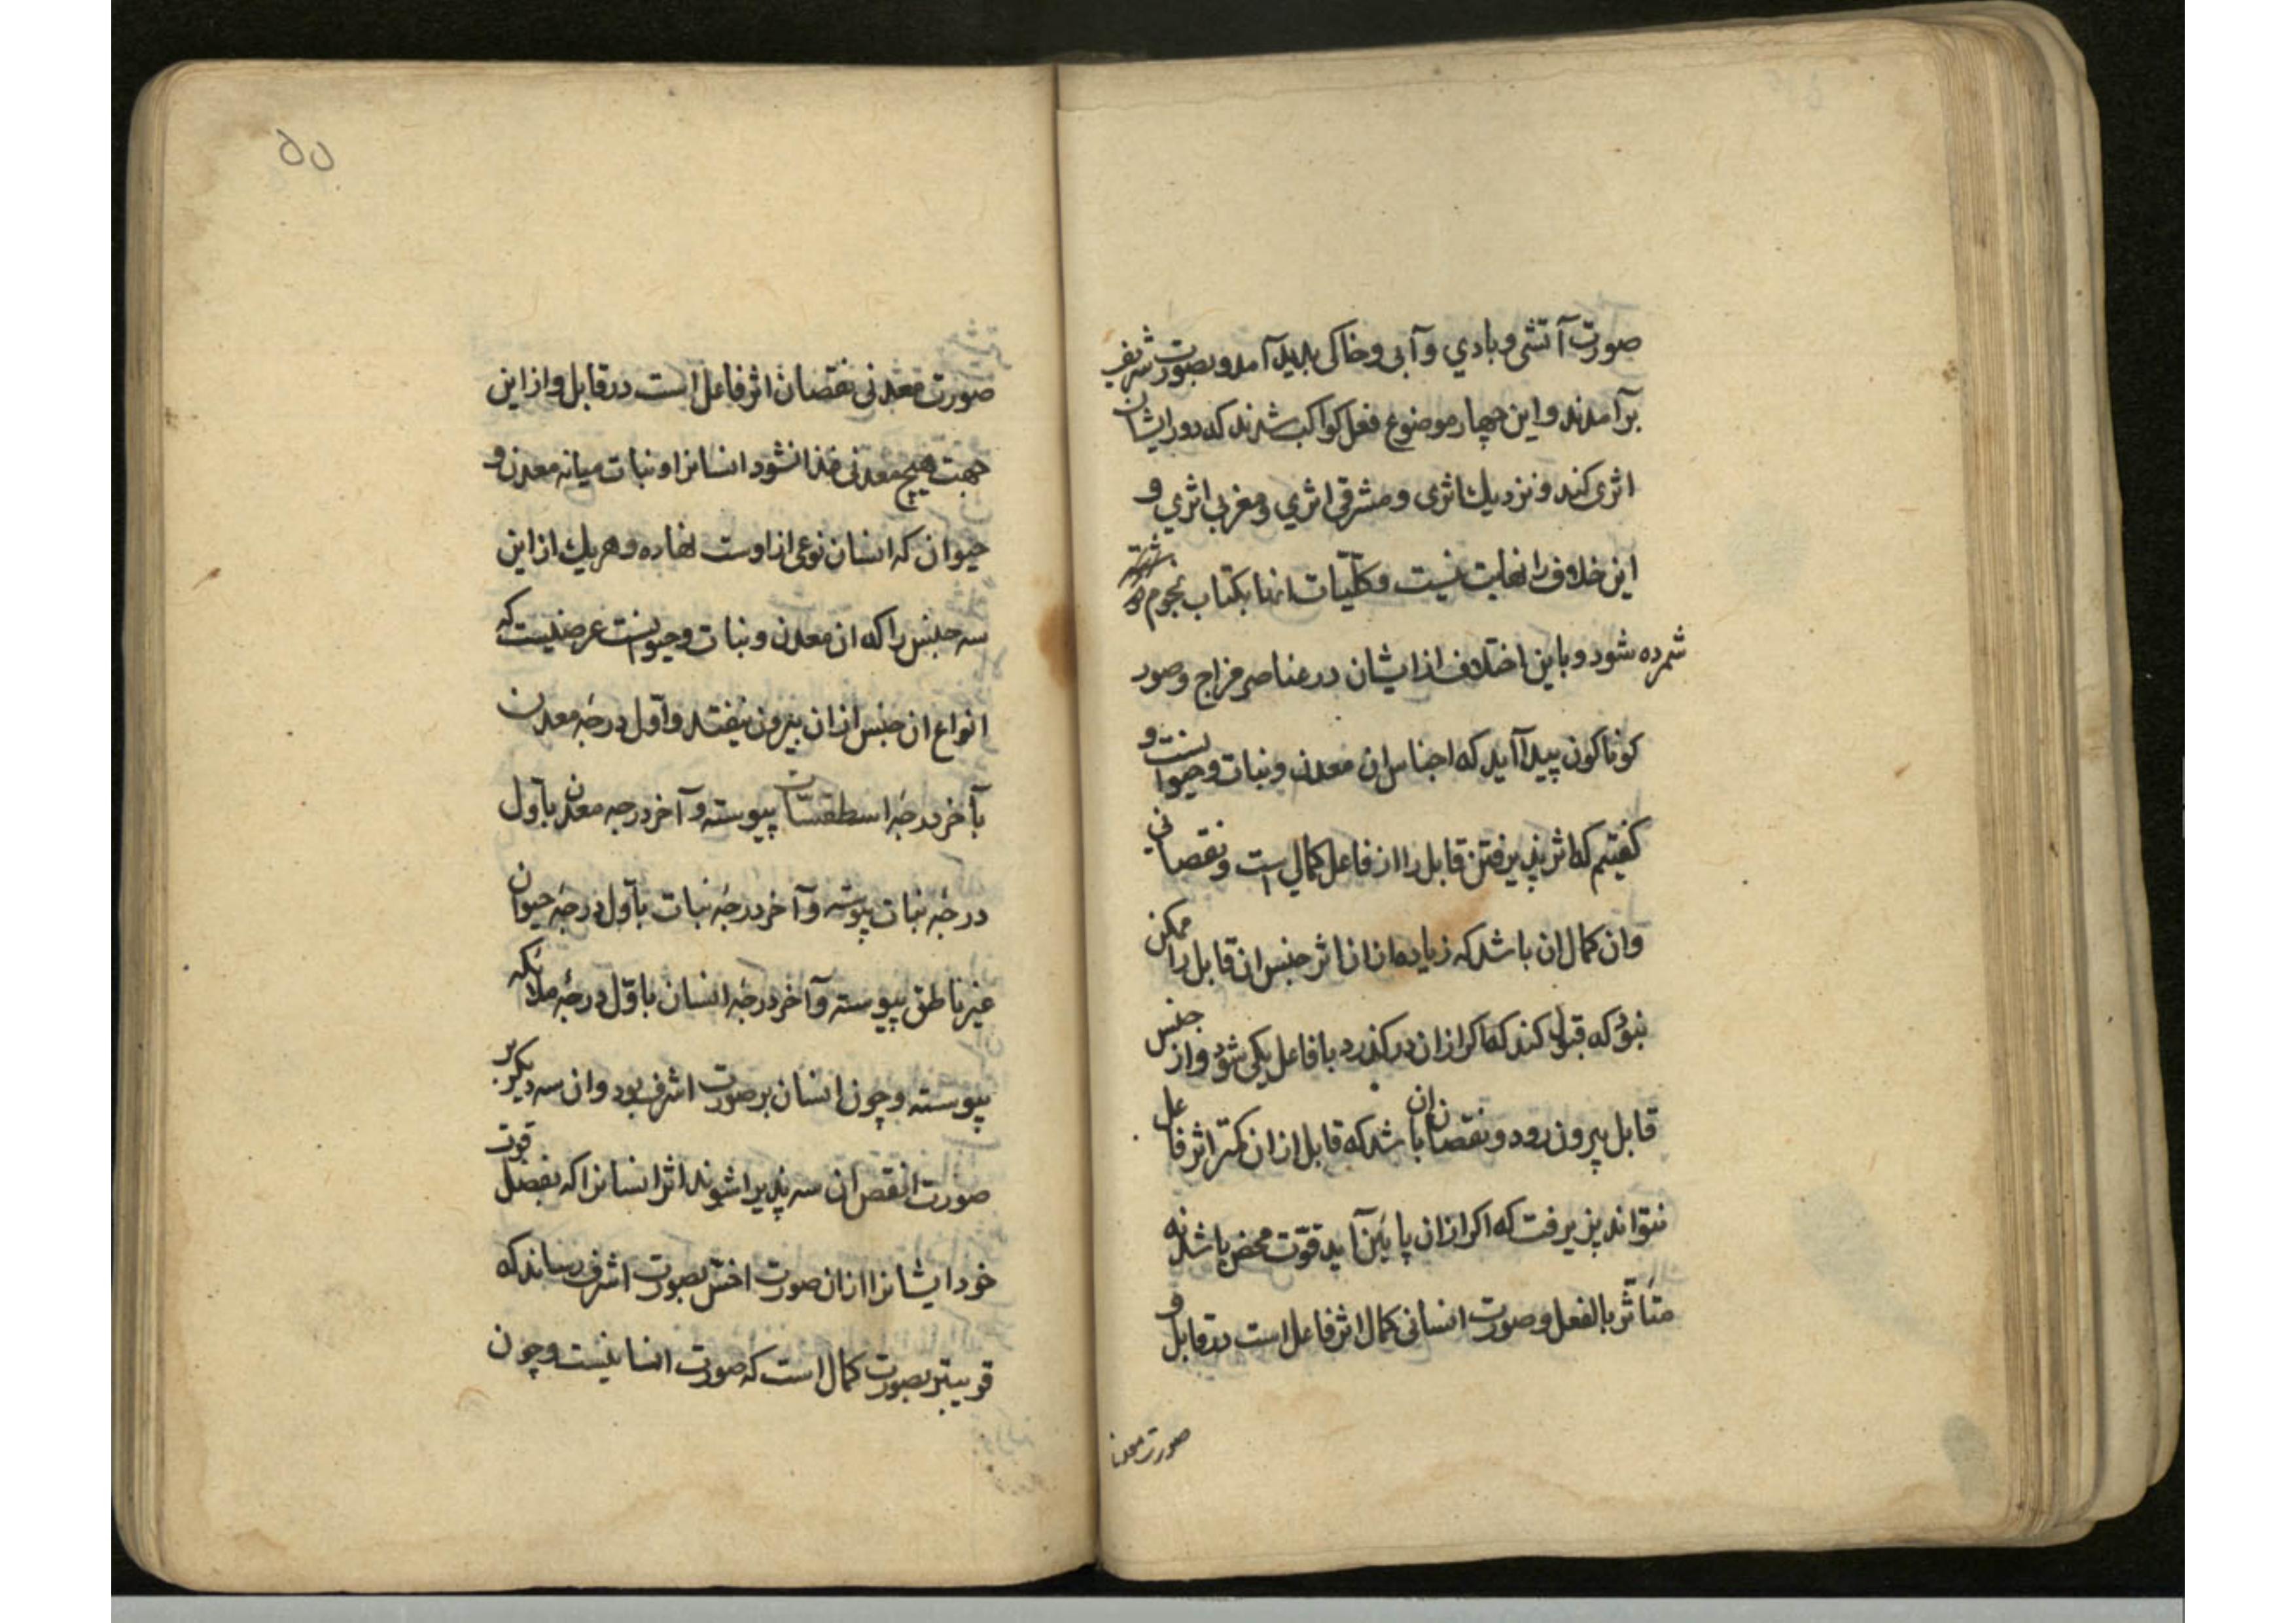 صورت آتشی و بادي و آبی و خاکی بدید آمد و بصورت شریف
برآمدند و این چهار موضوع فعل کواکب شدند که دور ایشان
اثری کند و نزدیک اثری و مشرقی اثري و مغربی اثري و
این خلاف را نهایت نیست و کلّیّات انها بکتاب نجوم در
شمرده شود و باین اختلاف از ایشان در عناصر مزاج و صور
کوناکون پیدا آید که اجناس ان معدن و نبات و حیوانست و
کفتیم که اثر پذیرفتن قابل را از فاعل کمالي است و نقصانی
وان کمال ان باشد که زیاده ازان اثر جنس ان قابل را ممکن
نبود که قبول کند که اکر ازان درکذرد با فاعل یکی شود و از جنس
قابل بیرون رود و نقصان ان باشد که قابل ازان کمتر اثر فاعل
نتواند پذیرفت که اکر ازان پایین آید قوّت محض باشد نه
متأثر بالفعل و صورت انسانی کمال اثر فاعل است در قابل و
صورت معدنی
۵۵
صورت معدنی نقصان اثر فاعل است در قابل و از این
جهت هیچ معدنی غذا نشود انسانرا و نبات میانه معدن و
حیوان که انسان نوعی از اوست نهاده و هریک از این
سه جنس را که ان معدن و نبات و حیوانست عرضیست که
انواع ان جنس ازان بیرون نیفتد و اوّل درجهٔ معدن
بآخر درجهٔ اسطقسّات پیوسته و آخر درجه معدن باوّل
درجهٔ نبات پیوسته و آخر درجهٔ نبات باوّل درجهٔ حیوان
غیر ناطق پیوسته و آخر درجهٔ انسان باوّل درجهٔ ملائکه
پیوسته و چون انسان بر صورت اشرف بود وان سه دیکر بر
صورت انقص ان سه پذیرا شوند اثر انسانرا که بفضل قوت
خود ایشانرا ازان صورت اخسّ بصورت اشرف رساند که
قریبتر بصورت کمال است که صورت انسانیست و چون